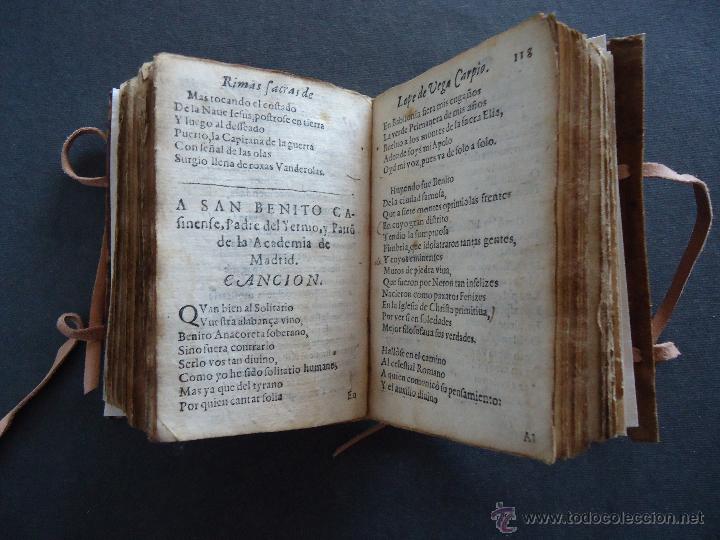 Rimas sacras de
Mas tocando el costado
De la Naue Iesus, postrose en tierra
Y luego al desseado
Puerto, la Capitana de la guerra
Con señal de las olas
Surgio llena de roxas Vanderolas.
A SAN BENITO CA-
sinense, Padre del Yermo, y Patrō
de la Academia de
Madrid.
CANCION.
QVan bien al Solitario
Vuestra alabança vino,
Benito Anacoreta soberano,
Sino fuera contrario
Serlo vos tan diuino,
Como yo he sido solitario humano,
Mas ya que del tyrano
Por quien cantar solia
En
Lope de Vega Carpio. 118
En Babilonia fiera mis engaños
La verde Primauera de mis años
Bueluo a los montes de la sacra Elia,
Adonde soys mi Apolo
Oyd mi voz, pues va de solo a solo.
Huyendo fue Benito
De la ciudad famosa,
Que a siete montes oprimio las frentes
En cuyo gran distrito
Tendio la sumptuosa
Fimbria, que idolatraron tantas gentes,
Y cuyos eminentes
Muros de piedra viua,
Que fueron por Neron tan infelizes
Nacieron como paxaros Fenizes
En la Iglesia de Christo primitiua,
Por ver si en soledades
Mejor filosofaua sus verdades.
Hallòse en el camino
Al celestial Romano
A quien comunicò su pensamiento:
Y el auxilio diuino
Al
© todocoleccion
www.todocoleccion.net